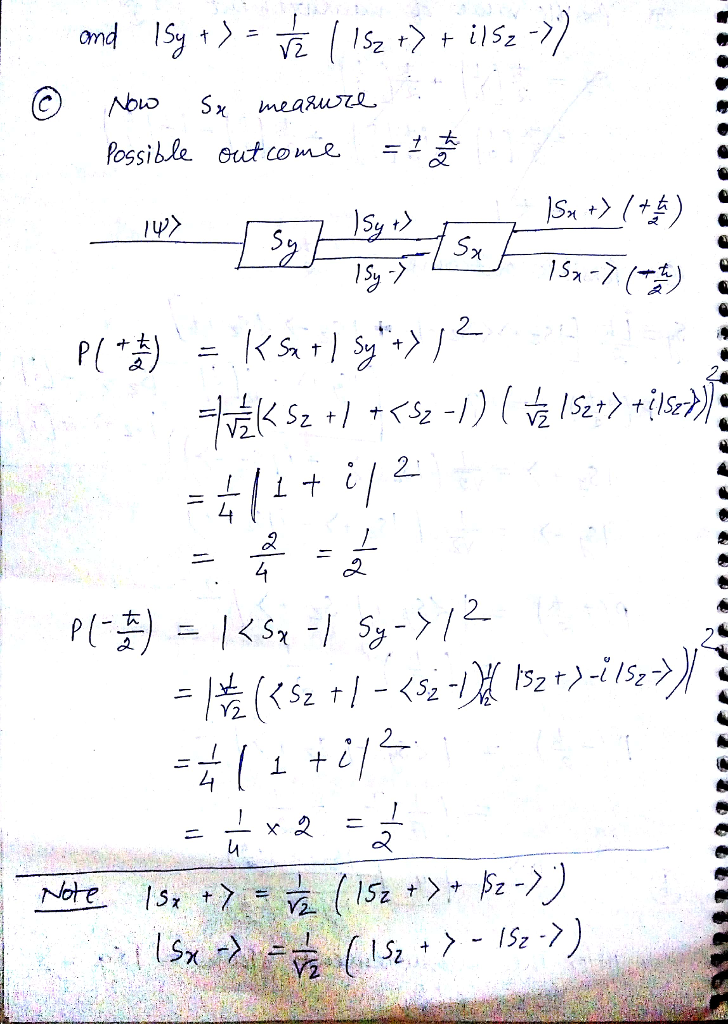 and |Sy +> = 1/√2 ( |Sz +> + i|Sz -> )
(c) Now Sx measure
Possible outcome = ± ħ/2
|ψ> Sy |Sy +> |Sy -> Sx |Sx +> (+ħ/2) |Sx -> (-ħ/2)
P(+ħ/2) = |< Sx + | Sy +>|²
= |1/√2 (< Sz +| + <Sz -|) ( 1/√2 |Sz+> + i|Sz->)|²
= 1/4 | 1 + i |²
= 2/4 = 1/2
P(-ħ/2) = |< Sx -| Sy ->|²
= |1/√2 (<Sz +| - <Sz -|) 1/√2 ( |Sz +> - i |Sz ->)|²
= 1/4 | 1 + i |²
= 1/4 × 2 = 1/2
Note |Sx +> = 1/√2 ( |Sz +> + |Sz -> )
|Sx -> = 1/√2 ( |Sz +> - |Sz -> )